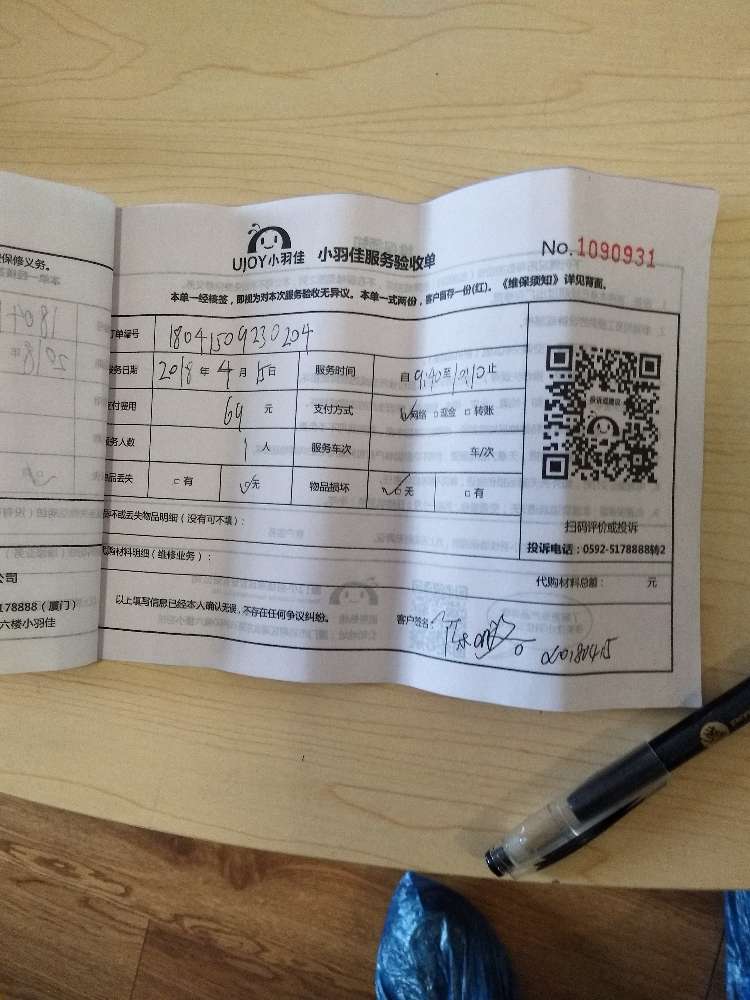 保修义务。
UJOY小羽佳 小羽佳服务验收单 No.1090931
本单一经核签，即视为对本次服务验收无异议。本单一式两份，客户留存一份(红)。《维保须知》详见背面。
订单编号 18041509230204
服务日期 2018 年 4 月 15 日 服务时间 自 9:40 至 12:10 止
支付费用 69 元 支付方式 网络 现金 转账
服务人数 1 人 服务车次 车/次
物品丢失 有 无 物品损坏 无 有
投诉或建议
损坏或丢失物品明细（没有可不填）：
扫码评价或投诉
投诉电话：0592-5178888转2
代购材料明细（维修业务）：
代购材料总额： 元
以上填写信息已经本人确认无误，不存在任何争议纠纷。 客户签名： 20180415
公司
178888（厦门）
六楼小羽佳